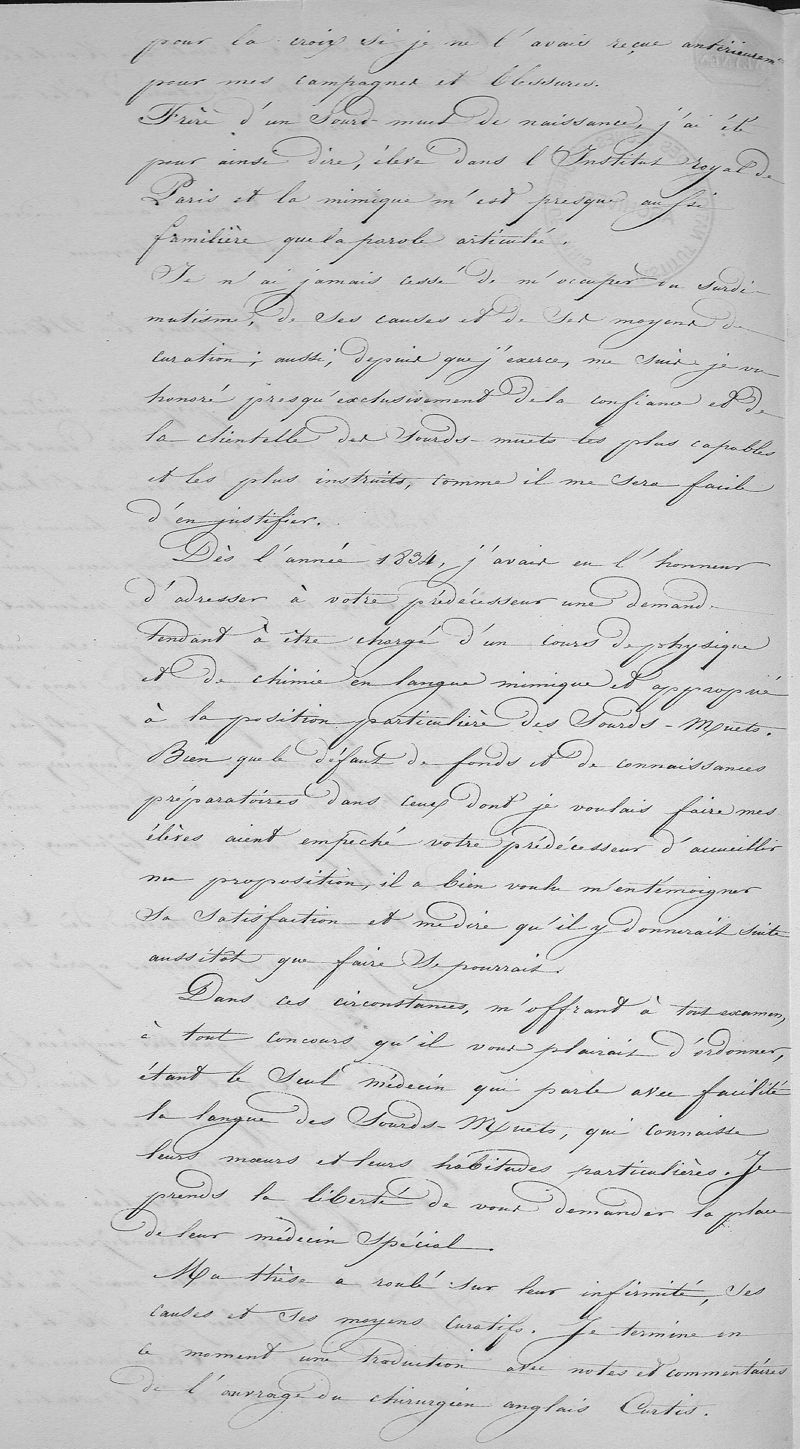 pour la croix si je ne l'avais reçue antérieurem
pour mes campagnes et blessures.
Frère d'un Sourd-muet de naissance, j'ai été
pour ainsi dire, élevé dans l'Institut royal de
Paris et la mimique m'est presque aussi
familière que la parole articulée.
Je n'ai jamais cessé de m'occuper du surdi-
mutisme, de ses causes et de ses moyens de
curation; aussi, depuis que j'exerce, me suis je vu
honoré presqu'exclusivement de la confiance et de
la clientelle des Sourds-muets les plus capables
et les plus instruits, comme il me sera facile
d'en justifier.
Dès l'année 1834, j'avais eu l'honneur
d'adresser à votre prédécesseur une demande
tendant à être chargé d'un cours de physique
et de chimie en langue mimique et approprié
à la position particulière des Sourds-Muets.
Bien que le défaut de fonds et de connaissances
préparatoires dans ceux dont je voulais faire mes
élèves aient empeché votre prédécesseur d'accueillir
ma proposition, il a bien voulu m'en témoigner
sa satisfaction et me dire qu'il y donnerait suite
aussitôt que faire se pourrait.
Dans ces circonstances, m'offrant à tout examen,
à tout concours qu'il vous plairait d'ordonner,
étant le seul médecin qui parle avec facilité
la langue des Sourds-Muets, qui connaisse
leurs mœurs et leurs habitudes particulières. Je
prends la liberté de vous demander la place
de leur médecin spécial.
Ma thèse a roulé sur leur infirmité, ses
causes et ses moyens curatifs. Je termine en
ce moment une traduction avec notes et commentaires
de l'ouvrage du chirurgien anglais Curtis.